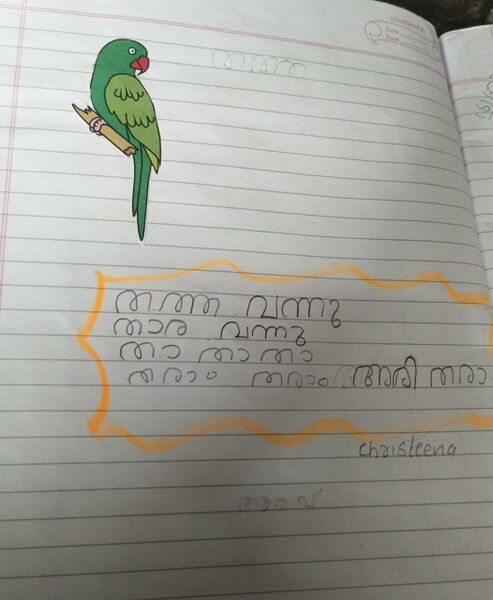 തത്ത
തത്ത വന്നു
താര വന്നു
താ താ താ
തരാം തരാം അരി തരാ
Christeena